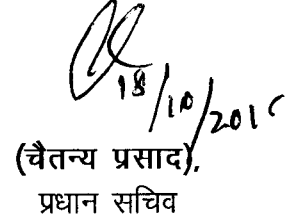 18/10/201
(चैतन्य प्रसाद),
प्रधान सचिव